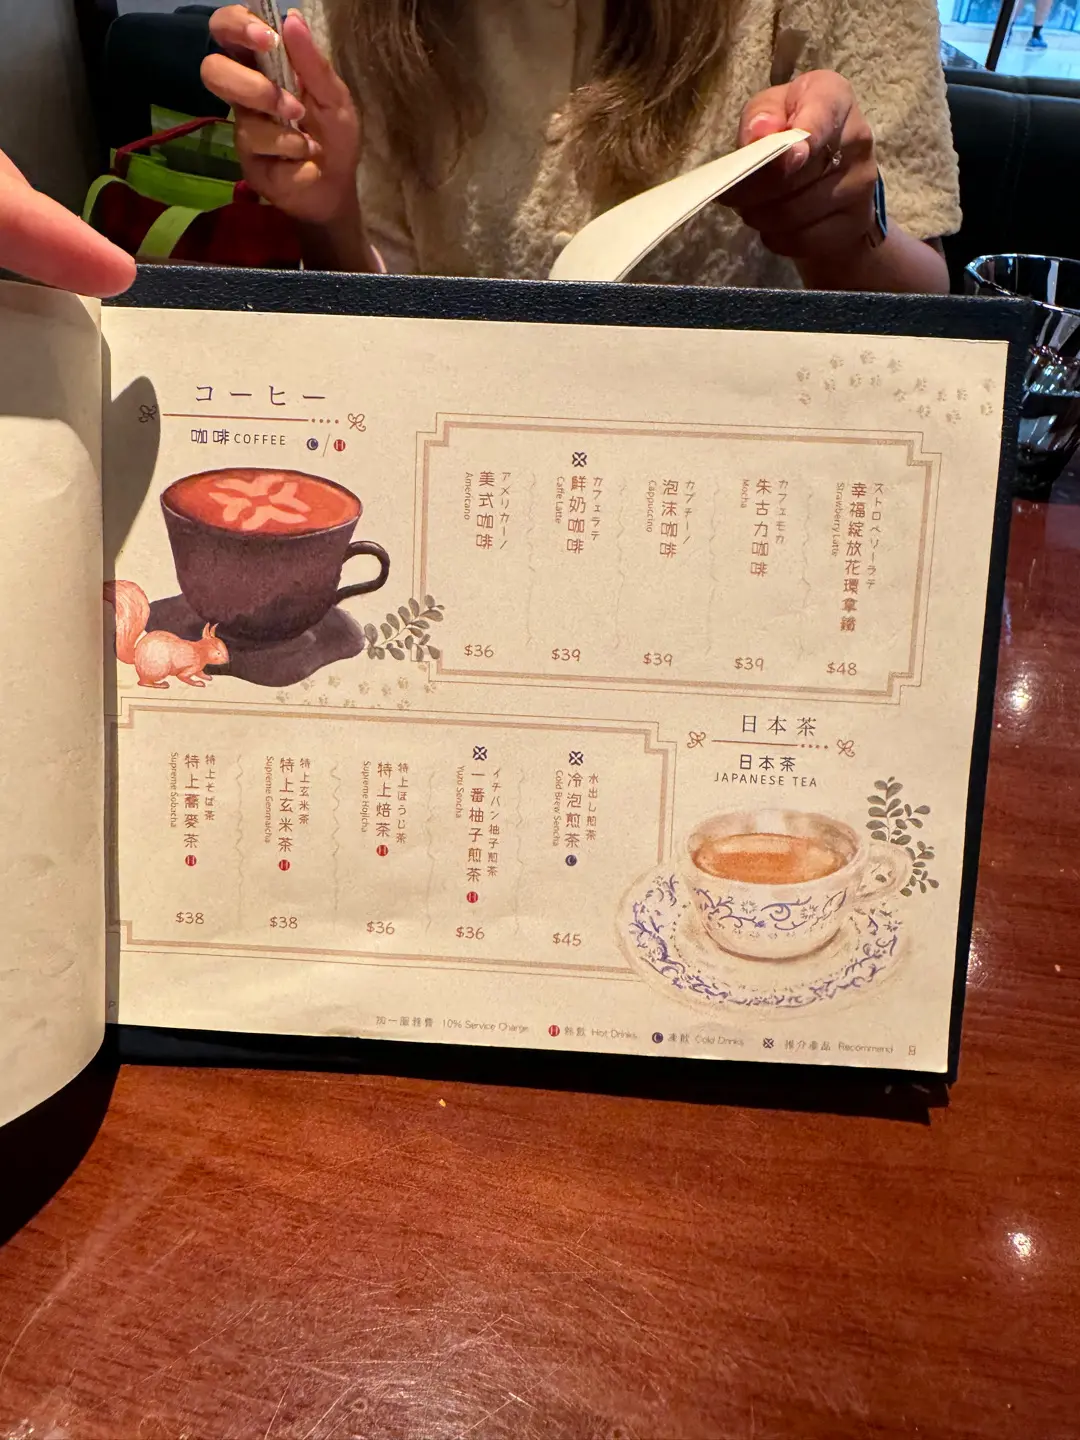 コーヒー
咖啡 COFFEE C / H
ストロベリーラテ
幸福綻放花環拿鐵
Strawberry Latte
$48
カフェモカ
朱古力咖啡
Mocha
$39
カプチーノ
泡沫咖啡
Cappuccino
$39
カフェラテ
鮮奶咖啡
Caffe Latte
$39
アメリカーノ
美式咖啡
Americano
$36
日本茶
日本茶
JAPANESE TEA
水出し煎茶
冷泡煎茶 C
Cold Brew Sencha
$45
イチバン柚子煎茶
一番柚子煎茶 H
Yuzu Sencha
$36
特上ほうじ茶
特上焙茶 H
Supreme Hojicha
$36
特上玄米茶
特上玄米茶 H
Supreme Genmaicha
$38
特上そば茶
特上蕎麥茶 H
Supreme Sobacha
$38
加一服務費 10% Service Charge H 熱飲 Hot Drinks C 凍飲 Cold Drinks 推介產品 Recommend